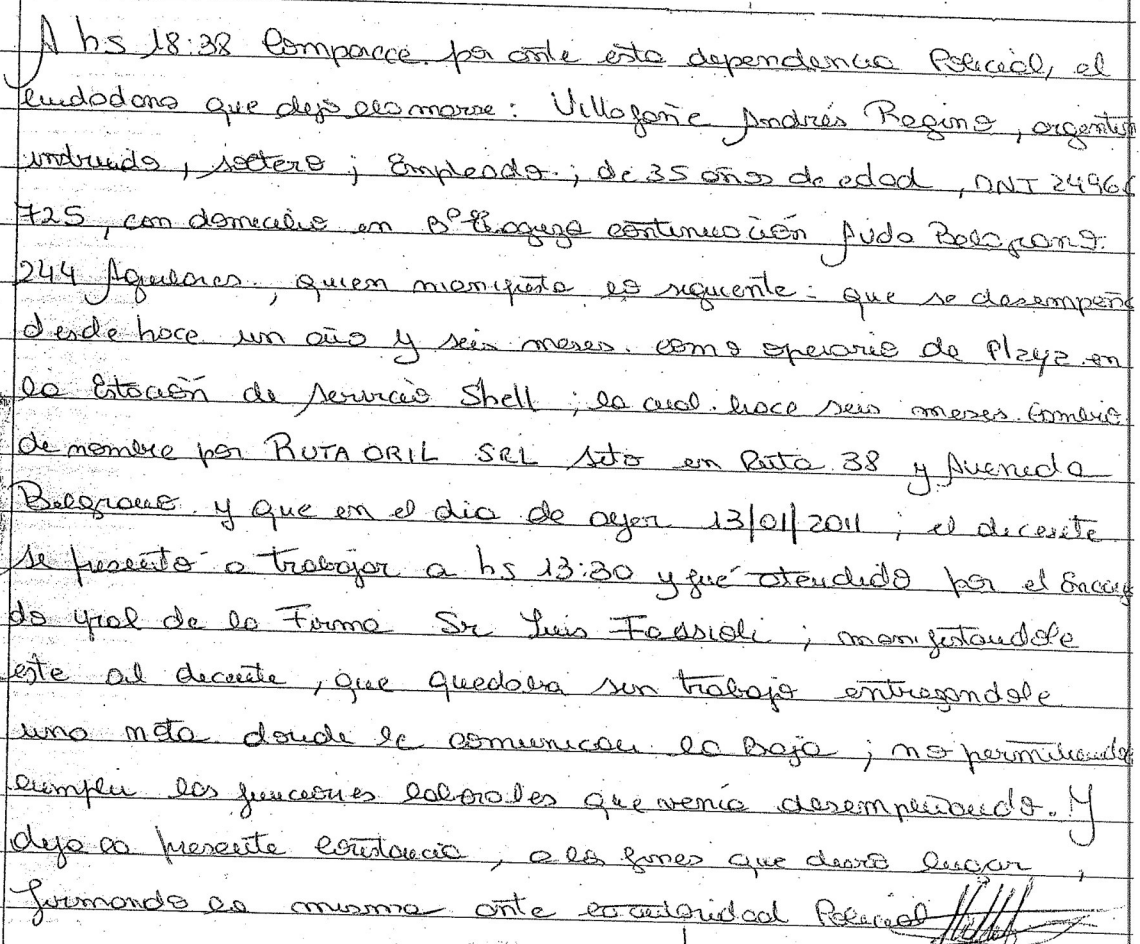 A hs 18:38 Comparece por ante esta dependencia Policial, el
ciudadano que dijo llamarse: Villafañe Andrés Regino, argentin
instruido, soltero; Empleado; de 35 años de edad, DNI 2496
725, con domicilio en Bº continuación Avda Belgrano
244 Aguilares, quien manifiesta lo siguiente: que se desempeñ
desde hace un año y seis meses. como operario de Playa en
la Estación de Servicio Shell; la cual hace seis meses cambio
de nombre por RUTA ORIL SRL sito en Ruta 38 y Avenida
Belgrano y que en el dia de ayer 13/01/2011; el dicente
se presentó a trabajar a hs 13:30 y fué atendido por el Encarg
do gral de la Firma Sr Luis Fassioli; manifestandole
este al dicente, que quedaba sin trabajo entregandole
una nota donde le comunican la Baja; no permitiendo
cumplir las funciones laborales que venía desempeñando. Y
deja la presente constancia, a los fines que diera lugar,
firmando la misma ante la autoridad Policial